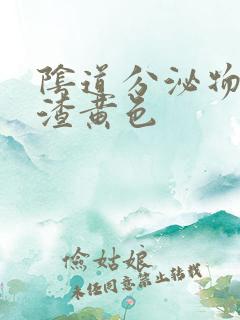 陰道分泌物
渣黄色
儉姑娘
未经同意禁止转载